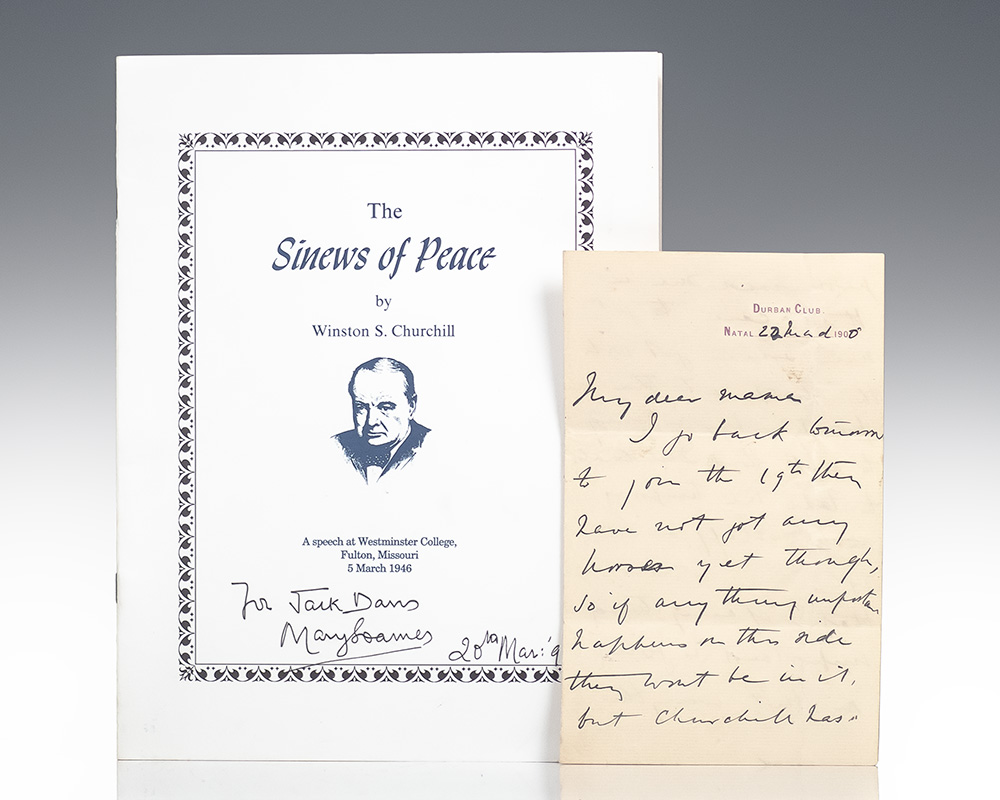 The
Sinews of Peace
by
Winston S. Churchill
A speech at Westminster College,
Fulton, Missouri
5 March 1946
For Jack Davis
Mary Soames
20th Mar: '9
DURBAN CLUB.
NATAL. 22 1900
My dear mama
I go back tomorrow
to join the 19th they
have not got any
horses yet though,
so if any thing important
happens on this side
they wont be in it,
but Churchill has